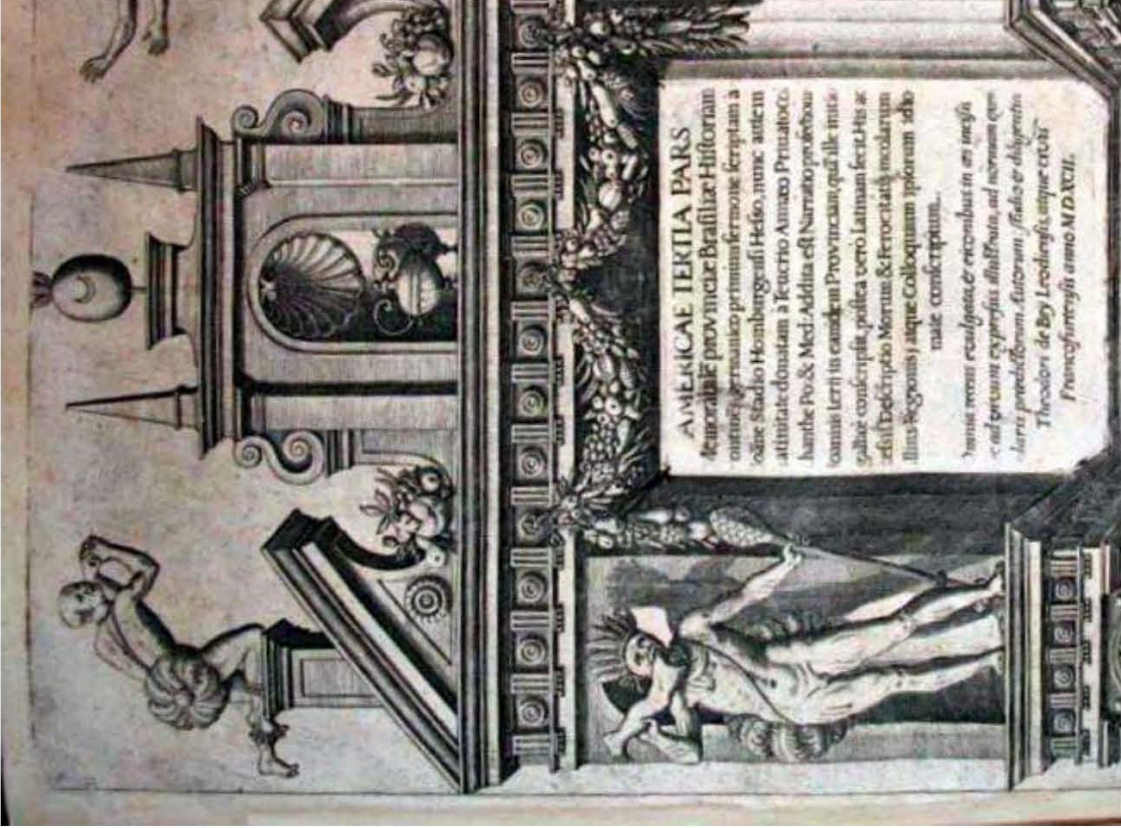 AMERICAE TERTIA PARS
Memorabilē provinciæ Brasiliæ Historiam
contines, germanico primùm sermone scriptam a
Ioāne Stadio Homburgensi Hesso, nunc autem
latinitate donatam à Teucrio Annæo Priuato co.
lchanthe Po: & Med: Addita est Narratio profectionis
Ioannis Lerij in eamdem Provinciam, quā ille initio
gallicè conscripsit, postea verò Latinam fecit. His ac
Descriptio Morum & Ferocitatis incolarum
illius Regionis, atque Colloquium ipsorum idio
mate conscriptum.
Omnia recens evulgata, & eiconibus in æs incisis
ac ad vivum expressis illustrata, ad normam exem
plaris prædictorum Autorum: studio & diligentia
Theodori de Bry Leodiensis, atque civis
Francofurtensis anno MDXCII.